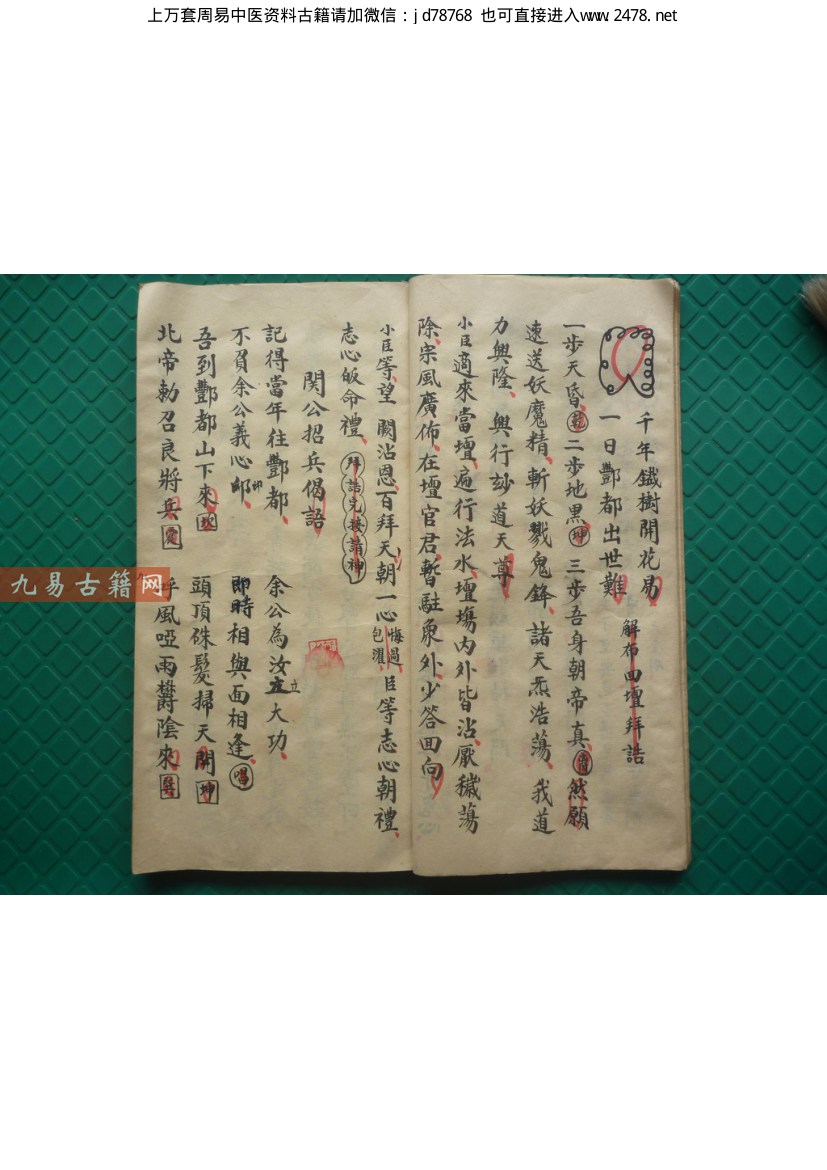 上万套周易中医资料古籍请加微信：jd78768 也可直接进入www.2478.net
千年鐵樹開花易
解布四壇拜誥
一日酆都出世難
一步天昏乾二步地黑坤三步吾身朝帝真 然願
速送妖魔精斬妖戮鬼鋒諸天炁浩蕩我道
力興隆興行玅道天尊
小臣適來當壇遍行法水壇塲内外皆沾厭穢蕩
除宗風廣佈在壇官君暫駐象外少答回向
小臣等望闕沾恩百拜天朝一心悔過包灈臣等志心朝禮
志心皈命禮拜誥完接請神
関公招兵偈語
記得當年往酆都余公為汝立大功
不負余公義心即時相與面相逢唱
吾到酆都山下來坎頭頂硃髮掃天開坤
北帝勅召良將兵 呼風啞雨欝陰來
九易古籍网